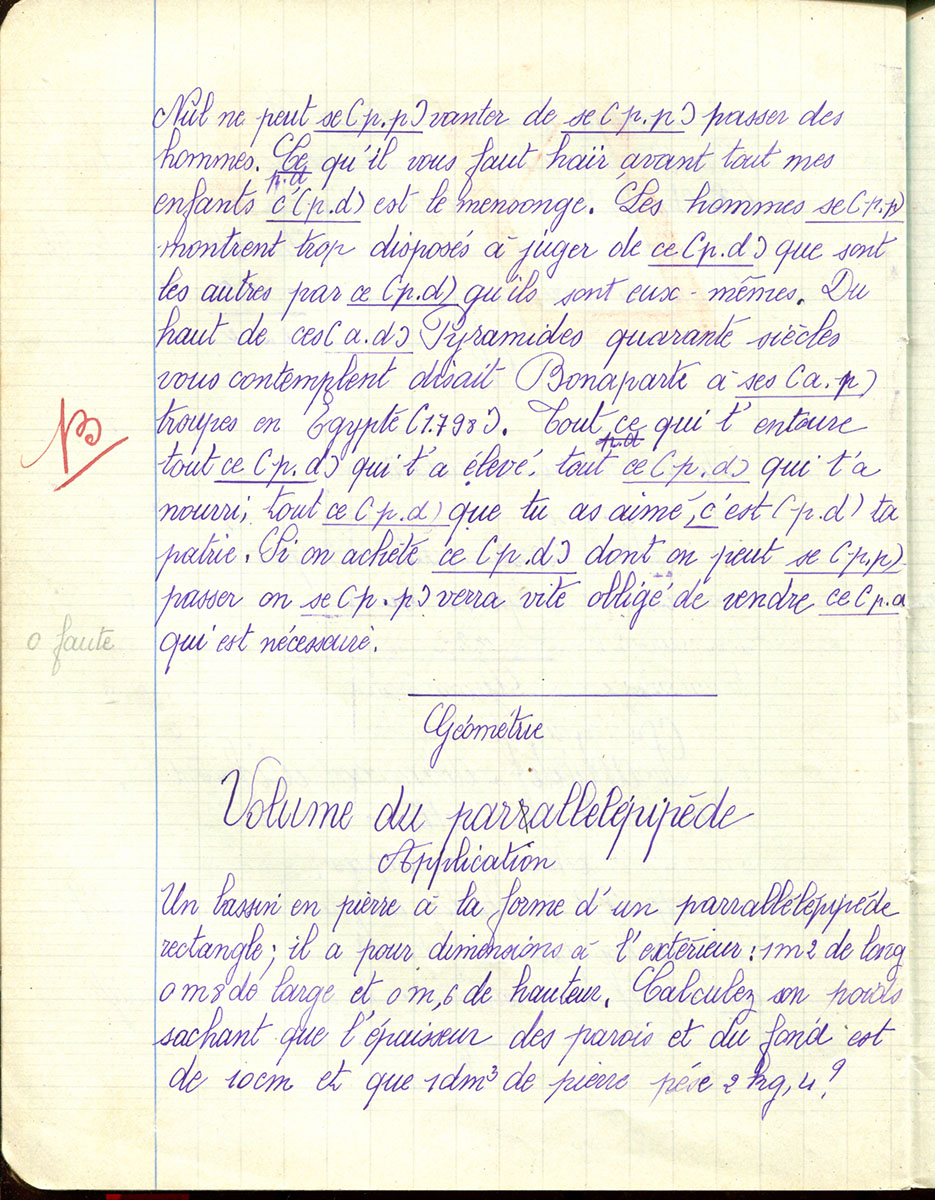 Nul ne peut se (p.p) vanter de se (p.p) passer des
hommes. Ce qu'il vous faut haïr avant tout mes
p.d
enfants c'(p.d) est le mensonge. Les hommes se (p.p)
montrent trop disposés à juger de ce (p.d) que sont
les autres par ce (p.d) qu'ils sont eux-mêmes. Du
haut de ces (a.d) Pyramides quarante siècles
vous contemplent disait Bonaparte à ses (a.p)
B
troupes en Egypte (1798). Tout ce qui t'entoure
p.d
tout ce (p.d) qui t'a élevé, tout ce (p.d) qui t'a
nourri; tout ce (p.d) que tu as aimé, c'est (p.d) ta
patrie. Si on achète ce (p.d) dont on peut se (p.p)
passer on se (p.p) verra vite obligé de vendre ce (p.d
0 faute
qui est nécessaire.
Géométrie
Volume du parrallélépipède
Application
Un bassin en pierre à la forme d'un parrallélépipède
rectangle; il a pour dimensions à l'extérieur: 1m2 de long
0m8 de large et 0m,6 de hauteur. Calculez son poids
sachant que l'épaisseur des parois et du fond est
de 10cm et que 1dm³ de pierre pèse 2kg,4?